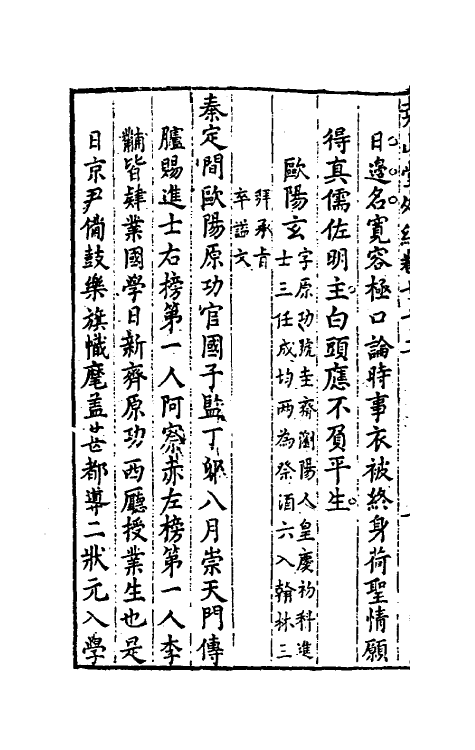 堯山堂外紀卷七十二
日邊名寬容極口論時事衣被終身荷聖情願
得真儒佐明主白頭應不負平生
歐陽玄
字原功號圭齋瀏陽人皇慶初科進
士三任成均兩為祭酒六入翰林三
拜承旨
卒諡文
秦定間歐陽原功官國子監丁卯八月崇天門傳
臚賜進士右榜第一人阿察赤左榜第一人李
黼皆肄業國學日新齋原功西廳授業生也是
日京尹備鼓樂旗幟麾蓋甚都導二狀元入學